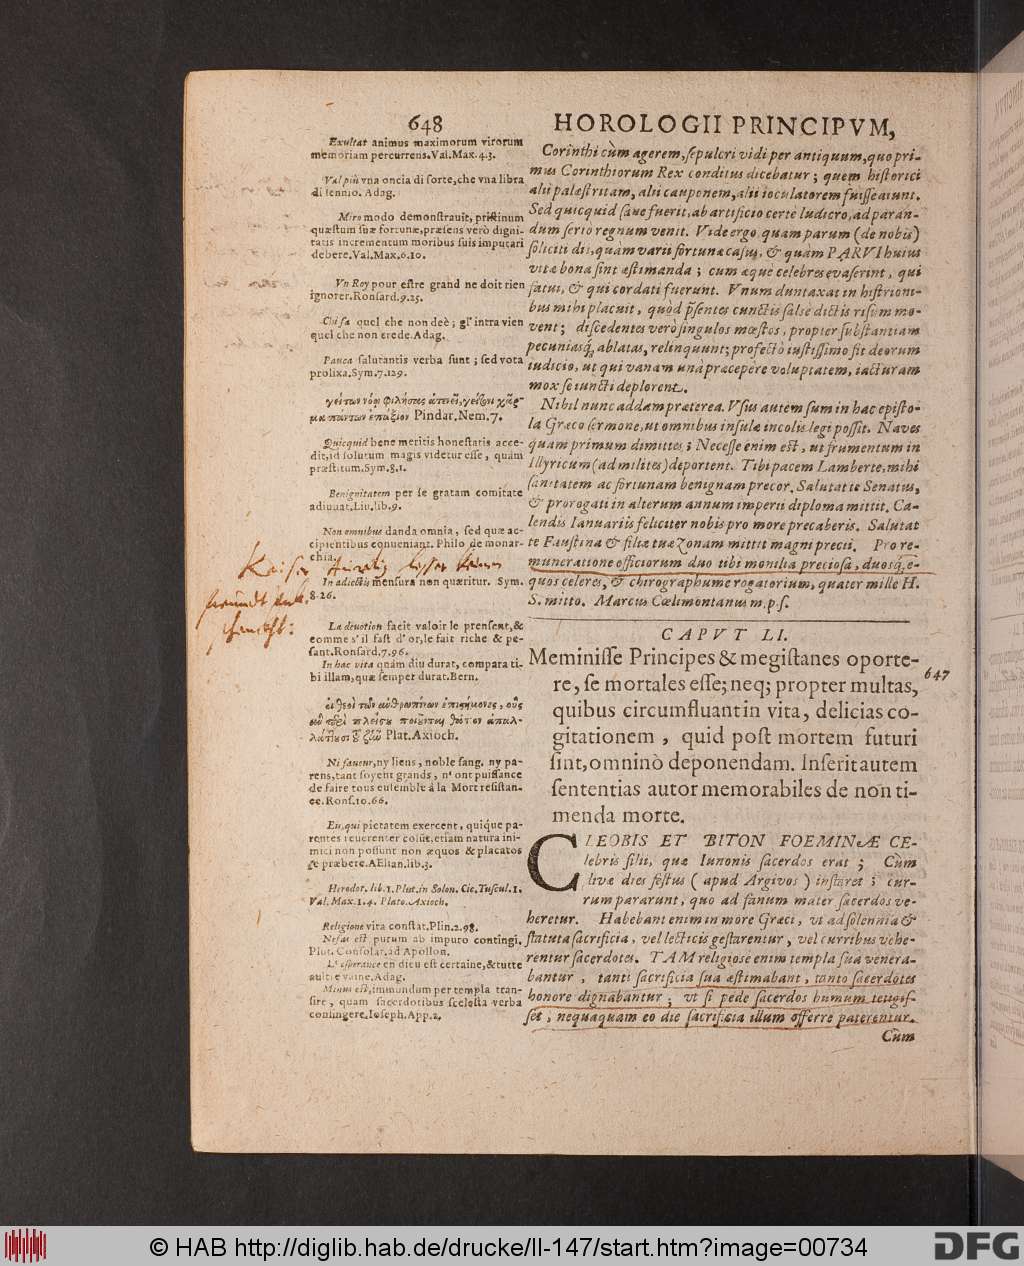 648
HOROLOGII PRINCIPVM,
Exultat animus maximorum virorum
memoriam percurrens. Val. Max. 4.3.
Val più vna oncia di sorte, che vna libra
di sennio. Adag.
Miro modo demonstrauit, pristinum
quæstum suæ fortunæ, præsens verò digni-
tatis incrementum moribus suis imputari
debere. Val. Max. 6.10.
Vn Roy pour estre grand ne doit rien
ignorer. Ronsard. 9.25.
Chi fa quel che non deè; gl' intra vien
quel che non crede. Adag.
Pauca salutantis verba sunt; sed vota
prolixa. Sym. 7.129.
Pindar. Nem. 7.
Quicquid bene meritis honestatis acce-
dit, id solutum magis videtur esse, quàm
præstitum. Sym. 8.1.
Benignitatem per se gratam comitate
adiuuat. Liu. lib. 9.
Non omnibus danda omnia, sed quæ ac-
cipientibus conueniant. Philo de monar-
chia.
In adiectis mensura non quæritur. Sym.
8.26.
La deuotion facit valoir le prensent, &
comme s' il fast d' or, le fait riche & pe-
sant. Ronsard. 7.96.
In hac vita quàm diu durat, compara ti-
bi illam, quæ semper durat. Bern.
Plat. Axioch.
Ni faueur, ny liens, noble sang, ny pa-
rens, tant soyent grands, n' ont puissance
de faire tous eusemble à la Mort resistan-
ce. Rons. 10.66.
Eis, qui pietatem exercent, quiq́ue pa-
rentes reuerenter colũt, etiam natura ini-
mici non possunt non æquos & placatos
se præbere. AElian. lib. 3.
Herodot. lib. 1. Plut. in Solon. Cic. Tuscul. 1.
Val. Max. 1.4. Plato. Axioch.
Religione vita constat. Plin. 2.98.
Nefas est purum ab impuro contingi.
Plut. Consolar. ad Apollon.
L' esperance en dieu est certaine, & tutte
aultre vaine. Adag.
Minus est, immundum per templa tran-
sire, quam sacerdotibus scelesta verba
contingere. Ioseph. App. 2.
Corinthi cùm agerem, sepulcri vidi per antiquum, quo pri-
mus Corinthiorum Rex conditus dicebatur; quem historici
alii palæstritam, alii cauponem, alii ioculatorem fuisse aiunt.
Sed quicquid sane fuerit, ab artificio certè ludicro, ad paran-
dum serio regnum venit. Vide ergo quam parum (de nobis)
soliciti dii, quàm varii fortunæ casus, & quàm PARVI huius
vitæ bona sint æstimanda; cum æque celebres evaserint, qui
fatui, & qui cordati fuerunt. Vnum duntaxat in histrioni-
bus mihi placuit, quòd p̃sentes cunctis salse dictis risum mo-
vent; discedentes verò singulos mœstos, propter substantiam
pecuniasq́; ablatas, relinquunt; profectò iustissimo fit deorum
iudicio, ut qui vanam unà præcepère voluptatem, iacturam
mox se iuncti deplorent.
Nihil nunc addam præterea. Vsus autem sum in hac episto-
la Græco sermone, ut omnibus insulæ incolis legi possit. Naves
quam primum dimittes; Necesse enim est, ut frumentum in
Illyricum (ad milites) deportent. Tibi pacem Lamberte, mihi
sanitatem ac fortunam benignam precor. Salutat te Senatus,
& prorogati in alterum annum imperii diploma mittit. Ca-
lendis Ianuariis feliciter nobis pro more precaberis. Salutat
te Faustina & filiæ tuæ Zonam mittit magni precii. Pro re-
muneratione officiorum duo tibi monilia preciosa, duosq́; e-
quos celeres, & chirographum erogatorium, quater mille H.
S. mitto. Marcus Cœlimontanus m. p. s.
CAPVT LI.
Meminisse Principes & megistanes oporte-
re, se mortales esse; neq; propter multas,
quibus circumfluant in vita, delicias co-
gitationem, quid post mortem futuri
sint, omninò deponendam. Inserit autem
sententias autor memorabiles de non ti-
menda morte.
647
CLEOBIS ET BITON FOEMINÆ CE-
lebris filii, quæ Iunonis sacerdos erat; Cùm
live dies festus (apud Argivos) instaret; cur-
rum pararunt, quo ad fanum mater sacerdos ve-
heretur. Habebant enim in more Græci, vt ad solennia &
statuta sacrificia, vel lecticis gestarentur, vel curribus vehe-
rentur sacerdotes. TAM religiose enim templa sua venera-
bantur, tanti sacrificia sua æstimabant, tanto sacerdotes
honore dignabantur; vt si pede sacerdos humum tetigis-
set, nequaquam eo die sacrificia illum offerre paterentur.
Cùm
© HAB http://diglib.hab.de/drucke/ll-147/start.htm?image=00734
DFG